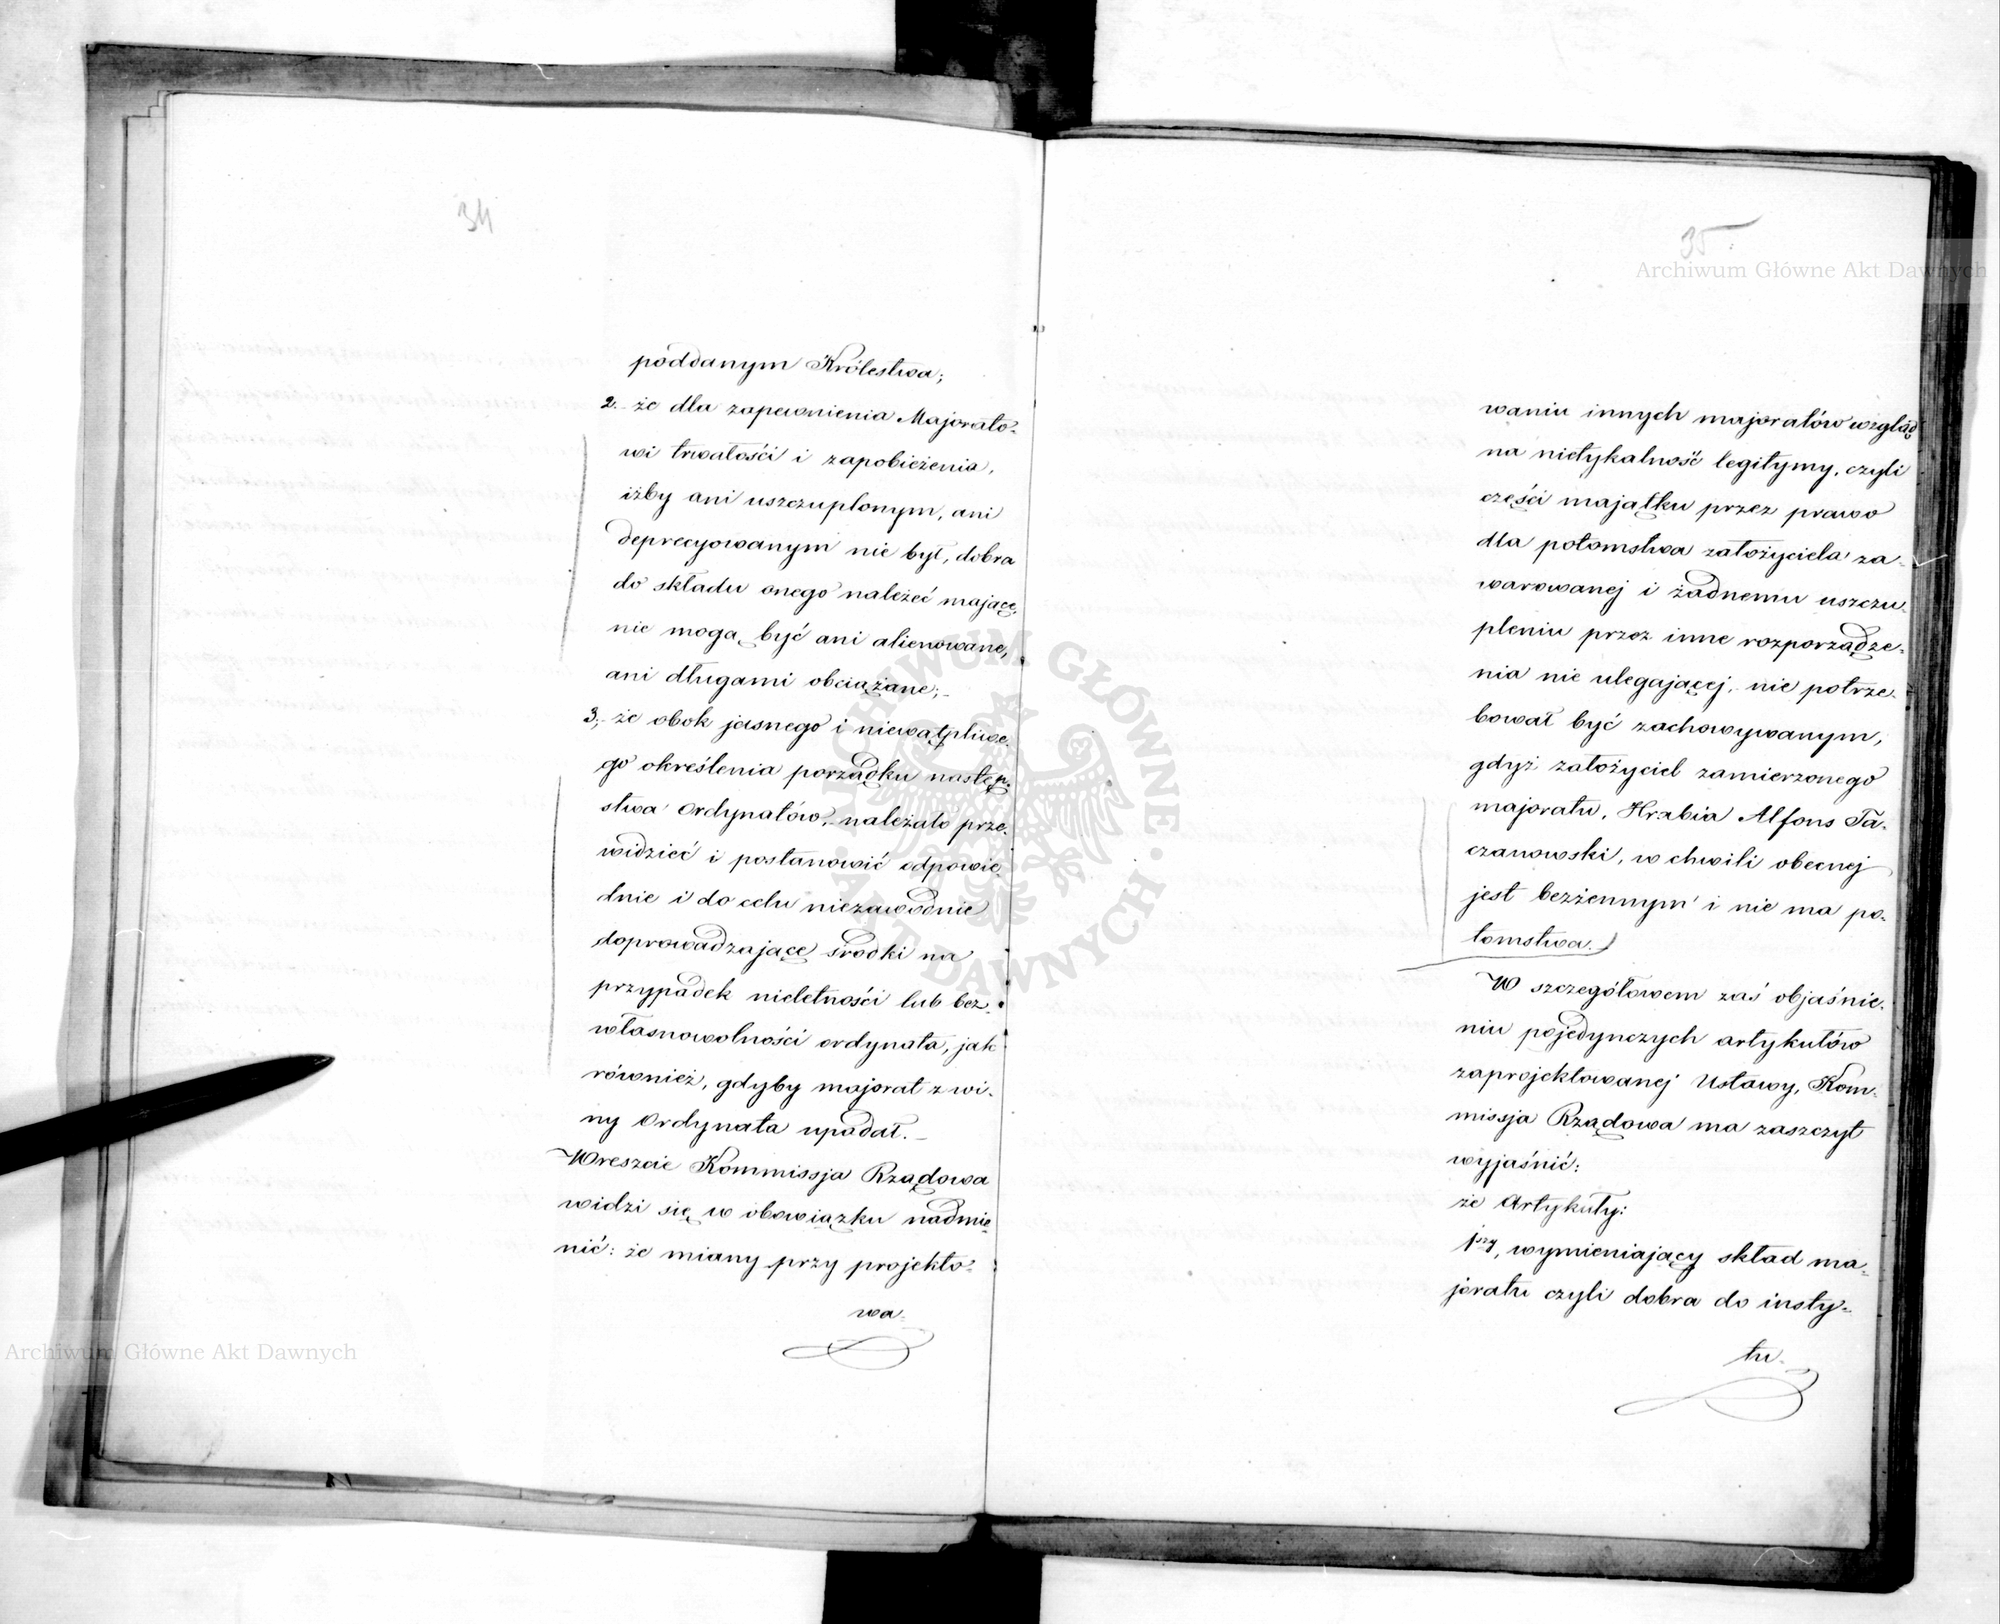 34
poddanym Królestwa;
2. że dla zapewnienia Majorato-
wi trwałości i zapobieżenia,
iżby ani uszczuplonym, ani
deprecyowanym nie był, dobra
do składu onego należeć mające,
nie mogą być ani alienowane,
ani długami obciążane;
3. że obok jasnego i niewątpliwe-
go określenia porządku następ-
stwa Ordynatów, należało prze-
widzieć i postanowić odpowie-
dnie i do celu niezawodnie
doprowadzające środki na
przypadek nieletności lub bez-
własnowolności ordynata, jak
również, gdyby majorat z wi-
ny Ordynata upadał.
Wreszcie Kommissja Rządowa
widzi się w obowiązku nadmie-
nić: że miany przy projekto-
wa-
35
waniu innych majoratów wzgląd
na nietykalność legitymy, czyli
części majątku przez prawo
dla potomstwa założyciela za-
warowanej i żadnemu uszczu-
pleniu przez inne rozporządze-
nia nie ulegającej, nie potrze-
bował być zachowywanym,
gdyż założyciel zamierzonego
majoratu, Hrabia Alfons Ta-
czanowski, w chwili obecnej
jest bezżennym i nie ma po-
tomstwa.)
W szczegółowem zaś objaśnie-
niu pojedynczych artykułów
zaprojektowanej Ustawy, Kom-
missja Rządowa ma zaszczyt
wyjaśnić:
że Artykuły:
1szy, wymieniający skład ma-
joratu czyli dobra do insty-
tu-
Archiwum Główne Akt Dawnych
Archiwum Główne Akt Dawnych
ARCHIWUM GŁÓWNE AKT DAWNYCH